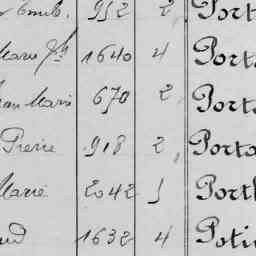 Emile. 952 2 Port
Marie Jph 1640 4 Porta
Jean Marie 670 2 Porta
Pierre 918 2 Porta
Marie 2042 5 Porth
1632 4 Poti